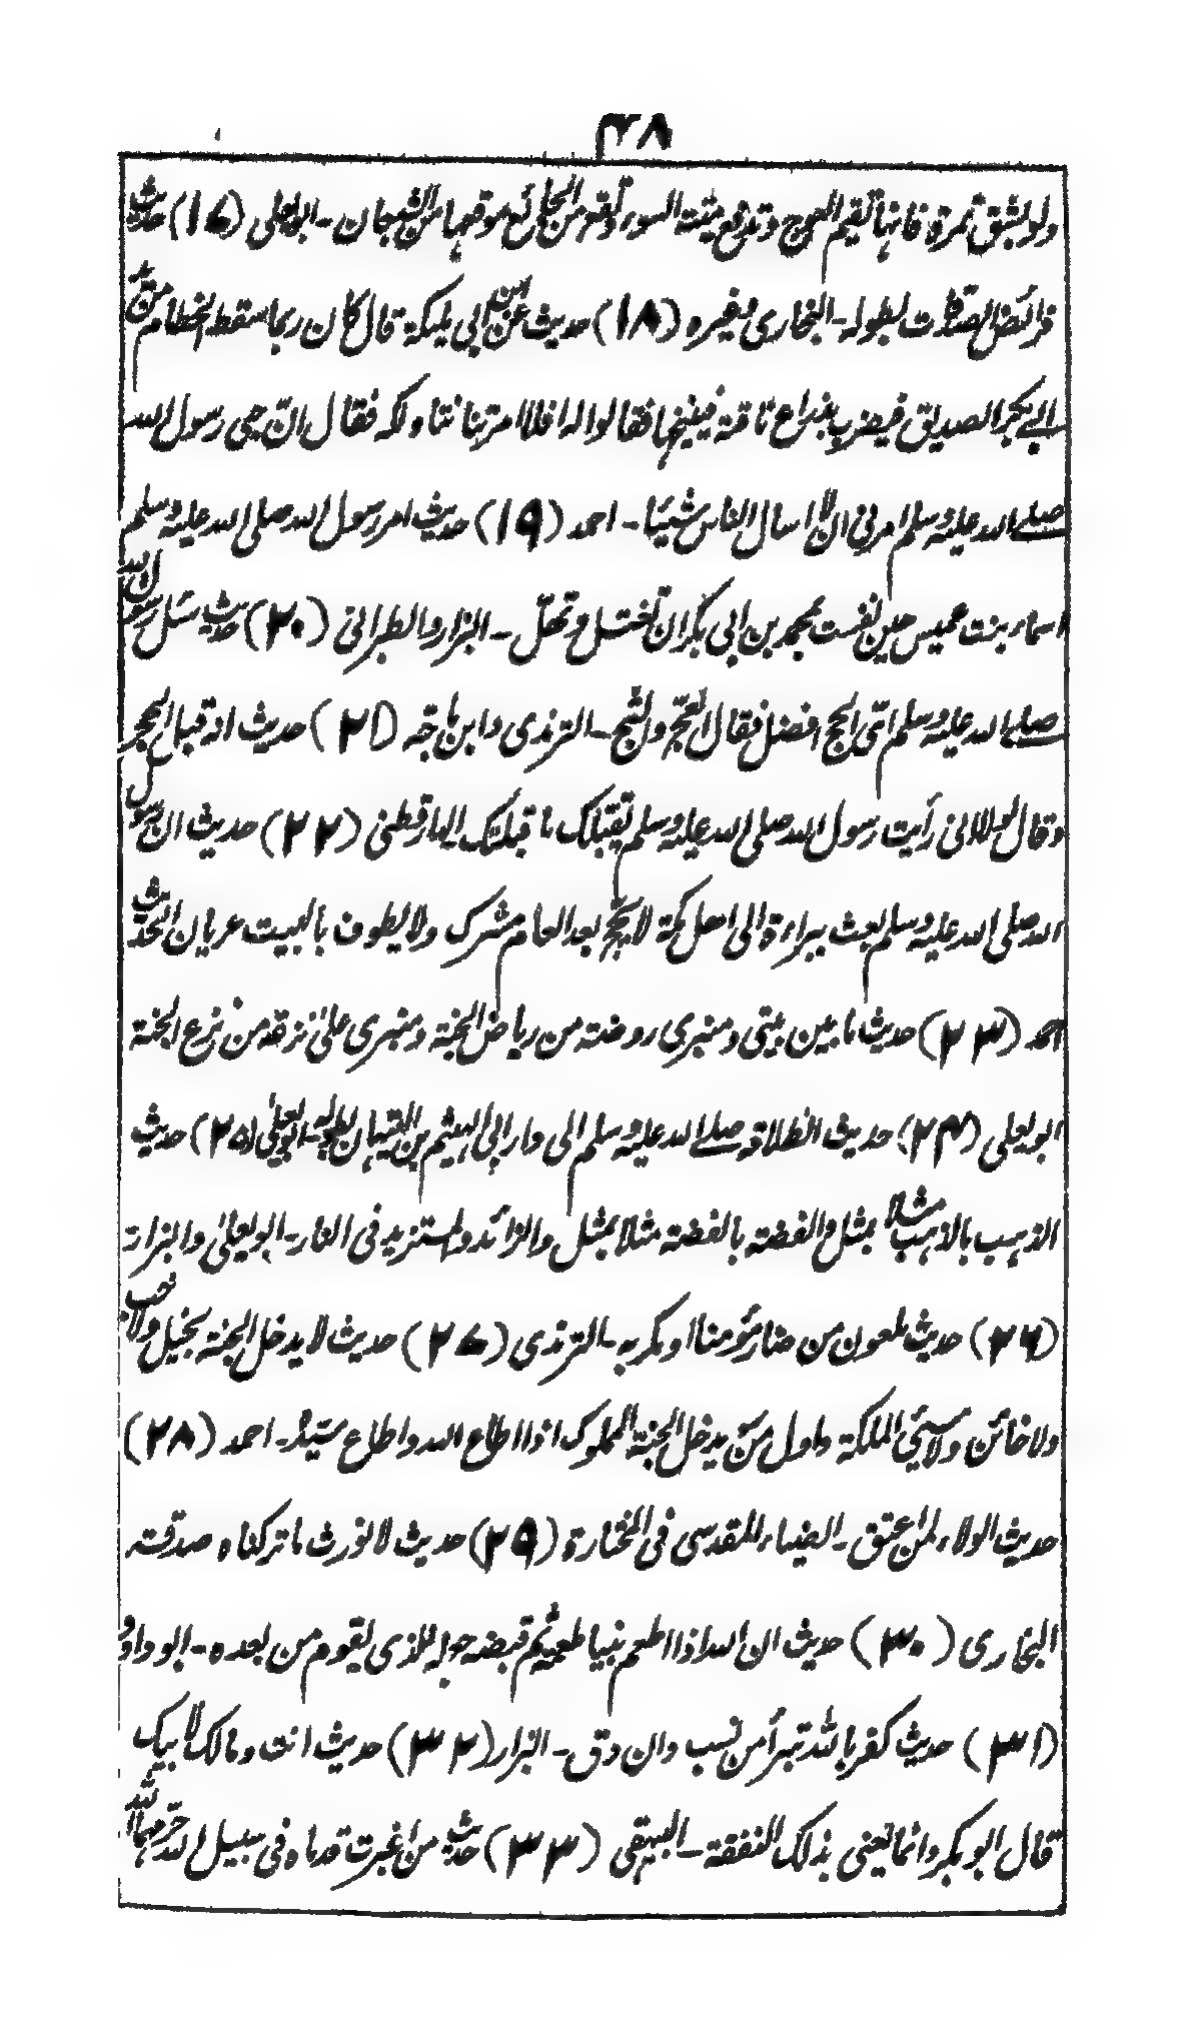 ۳۸
ولو بشق تمرة فانها تقيم العوج وتدفع ميتة السوء وتقع من الجائع موقعها من الشبعان - ابو يعلى (۱۷) حديث
فرائض الصدقات بطوله - البخاری وغيره (۱۸) حديث عن ابن ابی مليكة قال كان ربما سقط الخطام من يد
ابے بكر الصديق فيضرب بذراع ناقته فينيخها فقالوا له افلا امرتنا نناولكه فقال ان حبی رسول الله
صلے الله عليه وسلم امرنی ان لا اسال الناس شيئا - احمد (۱۹) حديث امر رسول الله صلى الله عليه وسلم
اسماء بنت عميس حين نفست بمحمد بن ابی بكر ان تغتسل وتهل - البزار والطبرانی (۲۰) حديث سئل رسول الله
صلے الله عليه وسلم ای الحج افضل فقال العج والثج - الترمذی وابن ماجة (۲۱) حديث انه قبل الحجر
وقال لولا انی رأيت رسول الله صلى الله عليه وسلم يقبلك ما قبلتك - الدارقطنی (۲۲) حديث ان رسول
الله صلى الله عليه وسلم بعث ببراءة الى اهل مكة لا يحج بعد العام مشرك ولا يطوف بالبيت عريان الحديث
احمد (۲۳) حديث ما بين بيتی ومنبری روضة من رياض الجنة ومنبری علىٰ ترعة من ترع الجنة
ابو يعلى (۲۴) حديث انطلاقه صلے الله عليه وسلم الى دار ابی الهيثم بن التيهان بطوله - ابو يعلىٰ (۲۵) حديث
الذهب بالذهب مثلا بمثل والفضة بالفضة مثلا بمثل والزائد والمستزيد فی النار - ابو يعلىٰ والبزار
(۲۶) حديث ملعون من ضار مؤمنا او مكر به - الترمذی (۲۷) حديث لا يدخل الجنة بخيل ولا خب
ولا خائن ولا سیئ الملكة واول من يدخل الجنة المملوك اذا اطاع الله واطاع سيده - احمد (۲۸)
حديث الولاء لمن اعتق - الضياء المقدسی فی المختارة (۲۹) حديث لا نورث ما تركناه صدقة
البخاری (۳۰) حديث ان الله اذا اطعم نبيا طعمة ثم قبضه جعله للذی يقوم من بعده - ابو داود
(۳۱) حديث كفر بالله تبرأ من نسب وان دق - البزار (۳۲) حديث انت ومالك لابيك
قال ابو بكر وانما يعنی بذلك النفقة - البيهقی (۳۳) حديث من اغبرت قدماه فی سبيل الله حرمهما الله